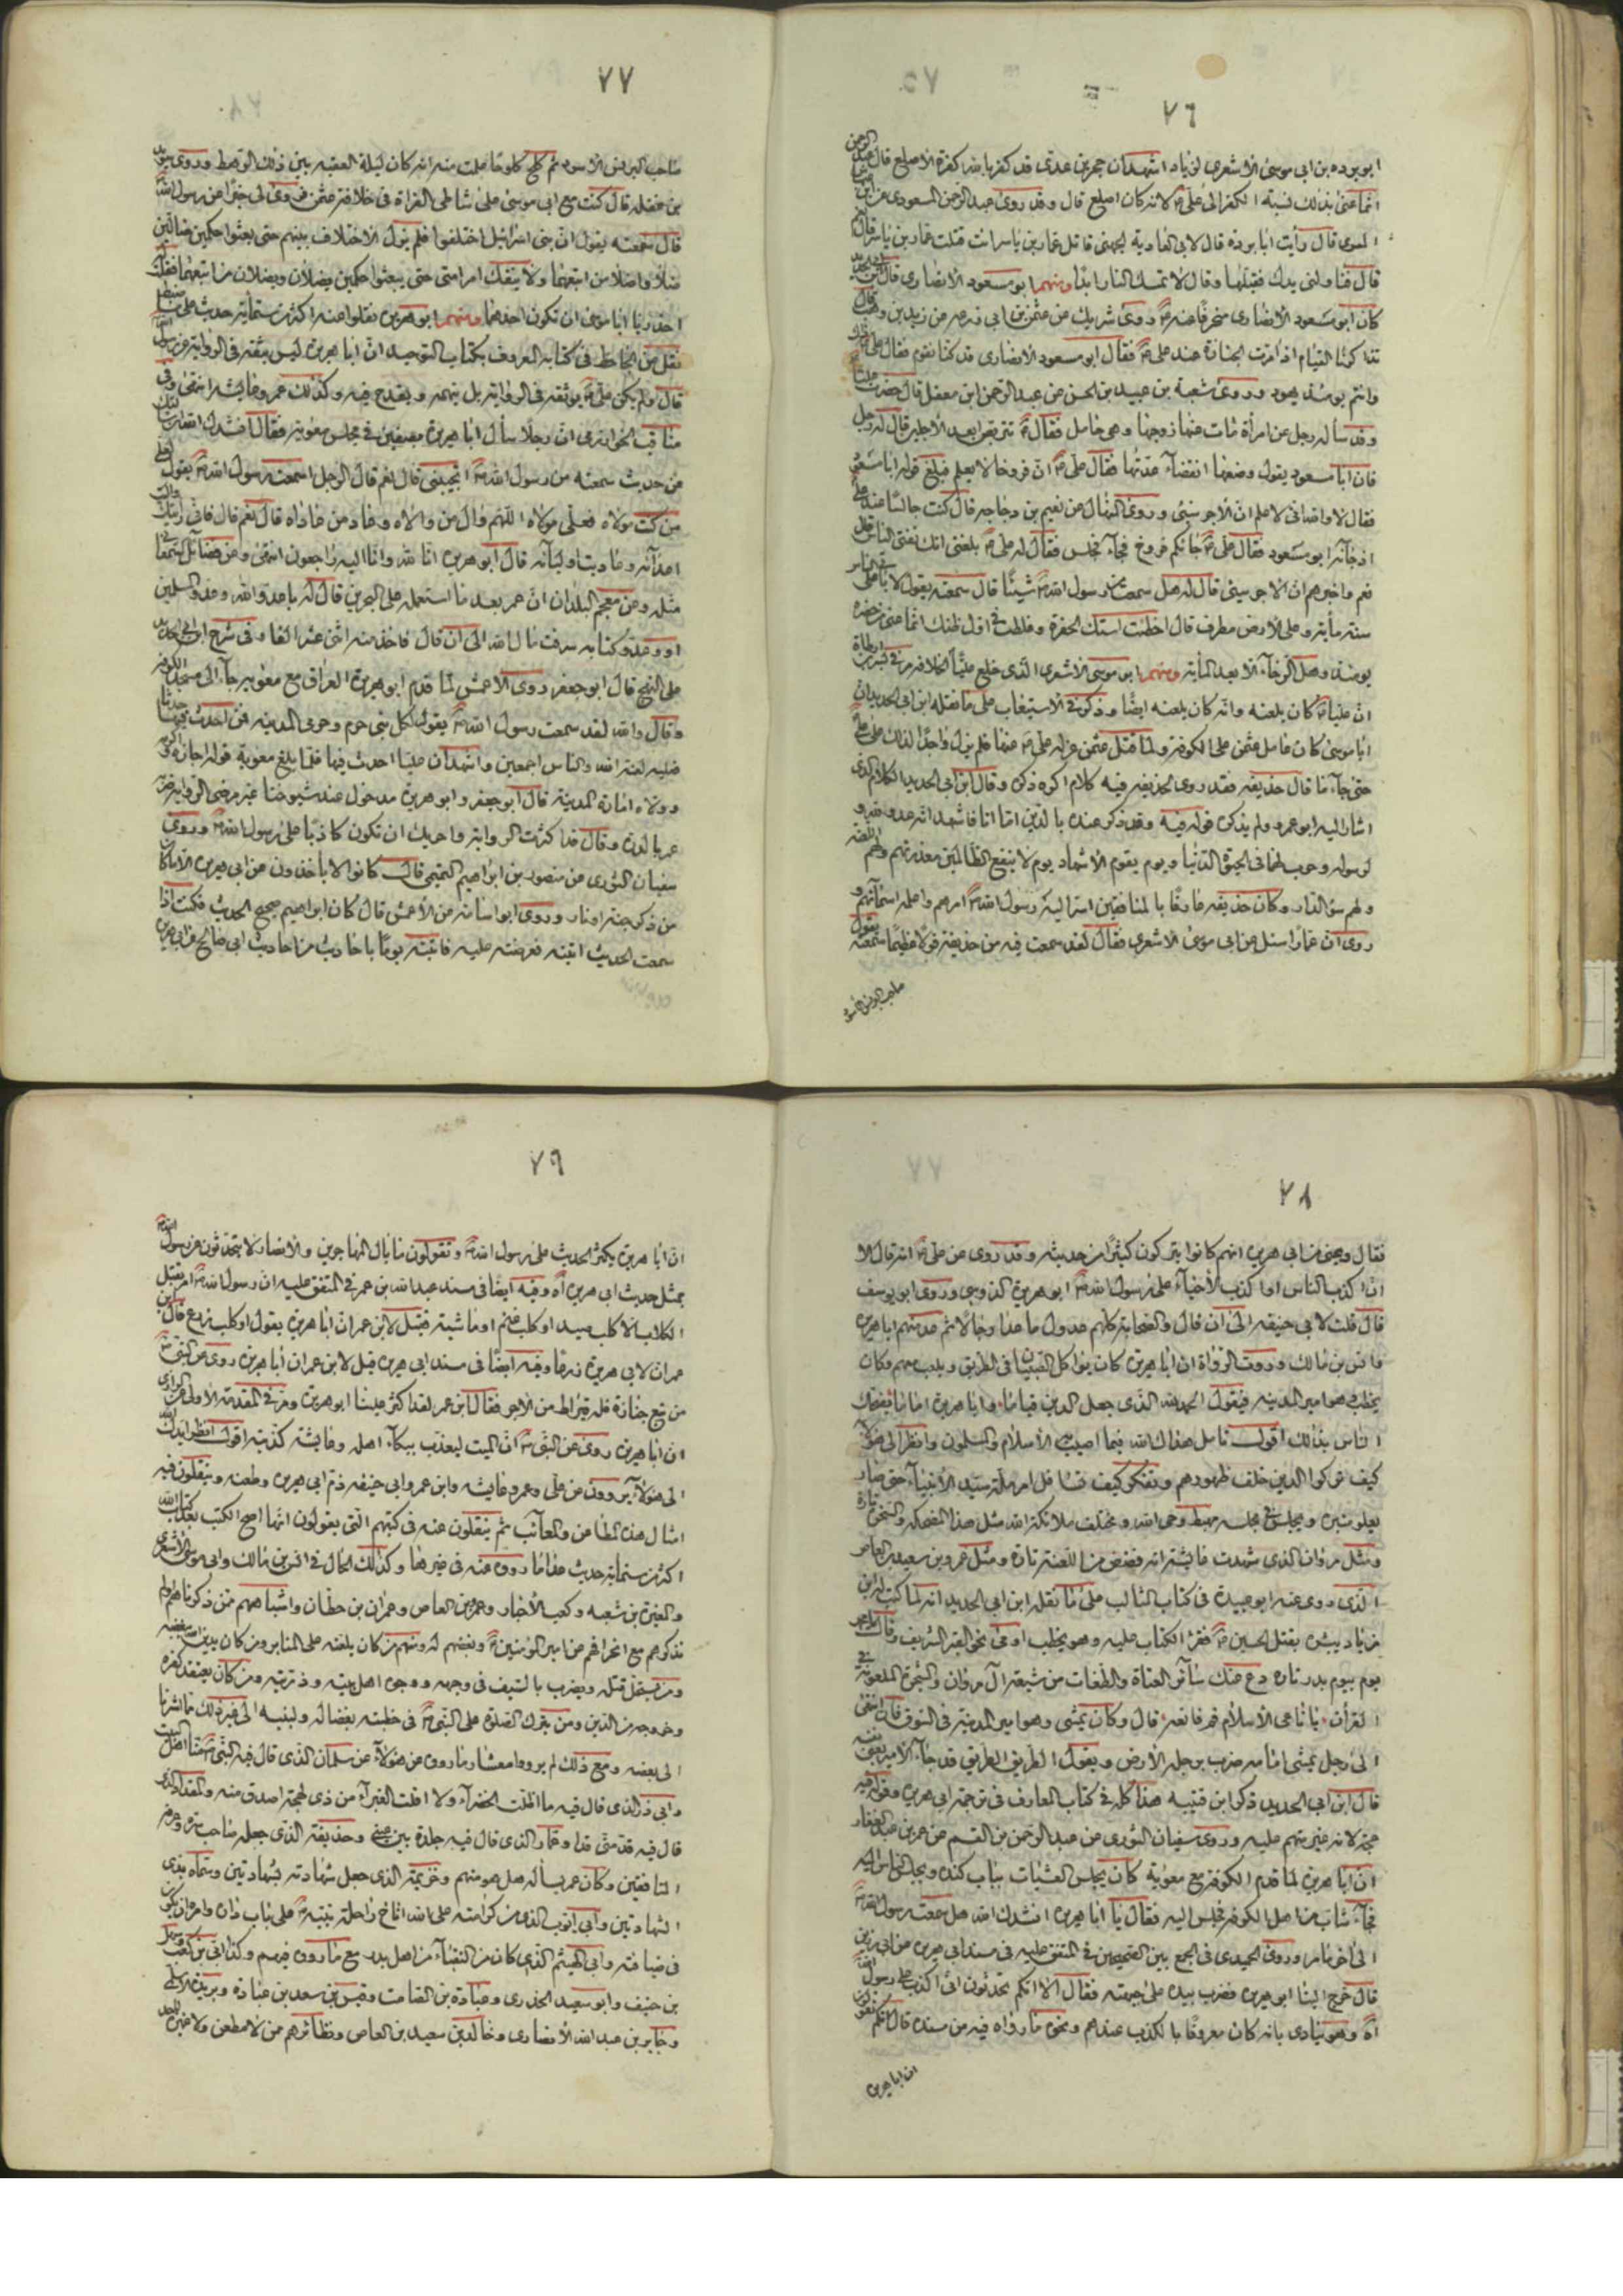 ٧٦
ابو برده بن ابي موسى الاشعري لزياد اشهد ان حجر بن عدي قد كفر بالله كفرة الاصلع قال عبد الرحمن
انما عنى بذلك نسبة الكفر الى علي لانه كان اصلع قال وقد روى عبد الرحمن المسعودي عن ابن عياش
المنتوف قال رأيت ابا بردة قال لابي الغادية الجهني قاتل عمار بن ياسر انت قتلت عمار بن ياسر قال نعم
قال فناولني يدك فقبلها وقال لا تمسك النار ابدا ومنهم ابو مسعود الانصاري قال ابن ابي الحديد
كان ابو مسعود الانصاري منحرفا عنه روى شريك عن عثمن بن ابي زرعه عن زيد بن وهب قال
تذاكرنا القيام اذا مرت الجنازة عند علي فقال ابو مسعود الانصاري قد كنا نقوم فقال علي ذاك
وانتم يومئذ يهود وروى شعبة بن عبيد بن الحسن عن عبد الرحمن ابن معقل قال حضرت عليا
وقد سأله رجل عن امرأة مات عنها زوجها وهي حامل فقال تتربص ابعد الاجلين قال له رجل
فان ابا مسعود يقول وضعها انقضاء عدتها فقال علي ان فروخا لا يعلم فبلغ قوله ابا مسعود
فقال لا والله اني لاعلم ان الآجر شيئ وروى المنهال عن نعيم بن دجاجه قال كنت جالسا عند علي
اذ جائه ابو مسعود فقال علي جائكم فروخ فجاء فجلس فقال له علي بلغني انك تفتي الناس قال
نعم واخبرهم ان الآخر شيئ قال له هل سمعت من رسول الله شيئا قال سمعته يقول لا يأتي على الناس
سنة مأية وعلى الارض مطرف قال اخطئت استك الحفرة وغلطت في اول ظنك انما عنى من حضره
يومئذ وهل الرخاء الا بعد المأية ومنهم ابو موسى الاشعري الذي خلع عليا الخلافة
ان عليا كان يلعنه وانه كان يلعنه ايضا وذكر في الاستيعاب على ما نقله ابن ابي الحديد ان
ابا موسى كان عامل عثمن على الكوفة ولما قتل عثمن عزله علي عنها فلم يزل واجدا لذلك على علي
حتى جاء ما قال حذيفه فقد روى لحذيفه فيه كلام اكره ذكره وقال ابن ابي الحديد الكلام الذي
اشار اليه ابو عمرو ولم يذكره قوله فيه وقد ذكر عنده بالدين اما انا فاشهد انه عدو لله و
لرسوله وحرب لهما في الحيوة الدنيا ويوم يقوم الاشهاد يوم لا ينفع الظالمين معذرتهم ولهم اللعنة
ولهم سوء الدار وكان حذيفه عارفا بالمنافقين اسر اليه رسول الله امرهم واعلمه اسمائهم و
روى ان عمارا سئل عن ابي موسى الاشعري فقال لقد سمعت فيه من حذيفة قولا عظيما سمعته يقول
صاحب البرنس الاسود
٧٧
صاحب البرنس الاسود ثم كلح كلوحا علمت منه انه كان ليلة العقبه بين ذلك الرهط وروى سويد
بن غفله قال كنت مع ابي موسى على شاطئ الفراة في خلافة عثمن فروى لي خبرا عن رسول الله
قال سمعته يقول ان بني اسرائيل اختلفوا فلم يزل الاختلاف بينهم حتى بعثوا حكمين ضالين
ضلا واضلا من اتبعهما ولا ينفك امر امتي حتى يبعثوا حكمين يضلان ويضلان من اتبعهما فقلت
احذر يا ابا موسى ان تكون احدهما ومنهم ابو هريره نقلوا عنه اكثر من ستمأية حديث
نقل عن الجاحظ في كتابه المعروف بكتاب التوحيد ان ابا هريرة ليس بثقه في الرواية عن رسول الله
قال ولم يكن علي يوثقه في الرواية بل يتهمه ويقدح فيه وكذلك عمر وعايشه انتهى وفي
مناقب الخوارزمي ان رجلا سأل ابا هريرة بصفين في مجلس معوية فقال انشدك الله
عن حديث سمعته من رسول الله اتجيبني قال نعم قال الرجل اسمعت رسول الله يقول لعلي
من كنت مولاه فعلي مولاه اللهم وال من والاه وعاد من عاداه قال نعم قال فاني رأيتك واليت
اعدائه وعاديت اوليائه قال ابو هريرة انا لله وانا اليه راجعون انتهى
مثله وعن معجم البلدان ان عمر بعد ما استعمله على البحرين قال له يا عدو الله وعدو المسلمين
او وعدو كتابه سرقت مال الله الى ان قال فاخذ منه اثني عشر الفا وفي شرح ابن ابي الحديد
على النهج قال ابو جعفر روى الاعمش لما قدم ابو هريرة العراق مع معوية جاء الى مسجد الكوفة
وقال والله لقد سمعت رسول الله يقول لكل نبي حرم وحرمي المدينه فمن احدث فيها حدثا
فعليه لعنة الله والناس اجمعين واشهد ان عليا احدث فيها فلما بلغ معوية قوله اجازه
وولاه امارة المدينة قال ابو جعفر وابو هريرة مدخول عند شيوخنا غير مرضي الرواية ضربه
عمر بالدرة وقال قد اكثرت الرواية واحر بك ان تكون كاذبا على رسول الله وروى
سفيان الثوري عن منصور بن ابراهيم التيمي قال كانوا لا يأخذون عن ابي هريرة الا ما كان
من ذكر جنة او نار وروى ابو اسامة عن الاعمش قال كان ابراهيم صحيح الحديث فكنت اذا
سمعت الحديث اتيته فعرضته عليه فاتيته يوما باحاديث من احاديث ابي صالح عن ابي هريرة
٧٨
فقال دعني من ابي هريرة انهم كانوا يتركون كثيرا من حديثه وقد روى عن علي انه قال الا
ان اكذب الناس او اكذب الاحياء على رسول الله ابو هريرة الدوسي وروى ابو يوسف
قال قلت لابي حنيفه الى ان قال والصحابة كلهم عدول ما عدا رجالا ثم عد منهم ابا هريرة
وانس بن مالك وروت الرواة ان ابا هريرة كان يؤاكل الصبيان في الطريق ويلعب معهم وكان
يخطب وهو امير المدينه فيقول الحمد لله الذي جعل الدين قياما وابا هريرة اماما يضحك
الناس بذلك اقول تأمل هداك الله فيما اصيب به الاسلام والمسلمون وانظر الى هؤلاء
كيف تركوا الدين خلف ظهورهم وتفكر كيف تسافل امر ملة سيد الانبياء حتى صار
يعلو منبره ويجلس في مجلسه مهبط وحي الله ومختلف ملائكة الله مثل هذا الضحكه والسخرة تارة
ومثل مروان الذي شهدت عايشة انه فضض من اللعنة تارة ومثل عمرو بن سعيد بن العاص
الذي روى عنه ابو عبيدة في كتاب المثالب على ما نقله ابن ابي الحديد انه لما كتب اليه ابن
زياد يبشره بقتل الحسين فقرء الكتاب عليه وهو يخطب اومى نحو القبر الشريف وقال يا محمد
يوم بيوم بدر تارة دع عنك سائر العتاة والطغات من شيعة آل مروان والشجرة الملعونة في
القرآن يا ناعي الاسلام قم فانعه قال وكان يمشي وهو امير المدينة في السوق فان انتهى
الى رجل يمشي امامه ضرب برجله الارض ويقول الطريق الطريق قد جاء الامير يعني نفسه
قال ابن ابي الحديد ذكر ابن قتيبه هذا كله في كتاب المعارف في ترجمة ابي هريرة وقوله فيه
حجة لانه غير متهم عليه وروى سفيان الثوري عن عبد الرحمن بن القسم عن عمر بن عبد الغفار
ان ابا هريرة لما قدم الكوفة مع معوية كان يجلس العشيات بباب كنده ويجلس الناس اليه
فجاء شاب من اهل الكوفة فجلس اليه فقال يا ابا هريرة انشدك الله هل سمعت رسول الله
الى آخر ما مر وروى الحميدي في الجمع بين الصحيحين في المتفق عليه في مسند ابي هريرة عن ابي رزين
قال خرج الينا ابو هريرة فضرب بيده على جبهته فقال الا انكم تحدثون اني اكذب على رسول الله
اه وهو ينادي بانه كان معروفا بالكذب عندهم ونحوه ما رواه فيه من مسنده قال انكم تقولون
ان ابا هريرة
٧٩
ان ابا هريرة يكثر الحديث على رسول الله وتقولون ما بال المهاجرين والانصار لا يتحدثون عن رسول الله
بمثل حديث ابي هريرة اه وفيه ايضا في مسند عبد الله بن عمر في المتفق عليه ان رسول الله امر بقتل
الكلاب الا كلب صيد او كلب غنم او ماشية فقيل لابن عمر ان ابا هريرة يقول او كلب زرع قال ابن
عمر ان لابي هريرة زرعا وفيه ايضا في مسند ابي هريرة قيل لابن عمر ان ابا هريرة روى عن النبي
من تبع جنازة فله قيراط من الاجر فقال ابن عمر لقد اكثر علينا ابو هريرة ومر في المقدمة الاولى
ان ابا هريرة روى عن النبي ان الميت ليعذب ببكاء اهله وعايشة كذبته اقول انظر ايدك الله
الى هؤلاء يروون عن علي وعمر وعايشه وابن عمر وابي حنيفه ذم ابي هريرة وطعنه وينقلون فيه
امثال هذه المطاعن والمعائب ثم ينقلون عنه في كتبهم التي يقولون انها اصح الكتب بعد كتاب الله
اكثر من ستمأية حديث عدا ما رووا عنه في غيرها وكذلك الحال في انس بن مالك وابي موسى الاشعري
والمغيرة بن شعبه وكعب الاحبار وعمرو بن العاص وعمران بن حطان واشباههم ممن ذكرناهم او لم
نذكرهم مع انحرافهم عن امير المؤمنين وبغضهم له ومنهم من كان يلعنه على المنابر ومن كان يدين الله ببغضه
ومن يستحل قتله ويضرب بالسيف في وجهه ووجوه اهل بيته وذريته ومن كان يعتقد كفره
وخروجه من الدين ومن يترك الصلوة على النبي في خطبته بغضا له ولبنيه الى غير ذلك مما اشرنا
الى بعضه ومع ذلك لم يرووا معشار ما رووا عن هؤلاء عن سلمان الذي قال فيه النبي منا اهل البيت
وابي ذر الذي قال فيه ما اظلت الخضراء ولا اقلت الغبراء من ذي لهجة اصدق منه والمقداد الذي
قال فيه قد مني قدا وعمار الذي قال فيه جلدة بين عيني وحذيفة الذي جعله صاحب سره وعرفه
المنافقين وكان عمر يسأله هل هو منهم وخزيمة الذي جعل شهادته بشهادتين وسماه بذي
الشهادتين وابي ايوب الذي من كرامته على الله اناخ راحلة نبيه على باب داره وامره ان يكون
في ضيافته وابي الهيثم الذي كان من النقباء من اهل بدر مع ما رووا فيهم وكذا ابي بن كعب وسهل
بن حنيف وابو سعيد الخدري وعبادة بن الصامت وقيس بن سعد بن عبادة وبريدة الاسلمي
وجابر بن عبد الله الانصاري وخالد بن سعيد بن العاص ونظائرهم ممن لا مطعن ولا غمز